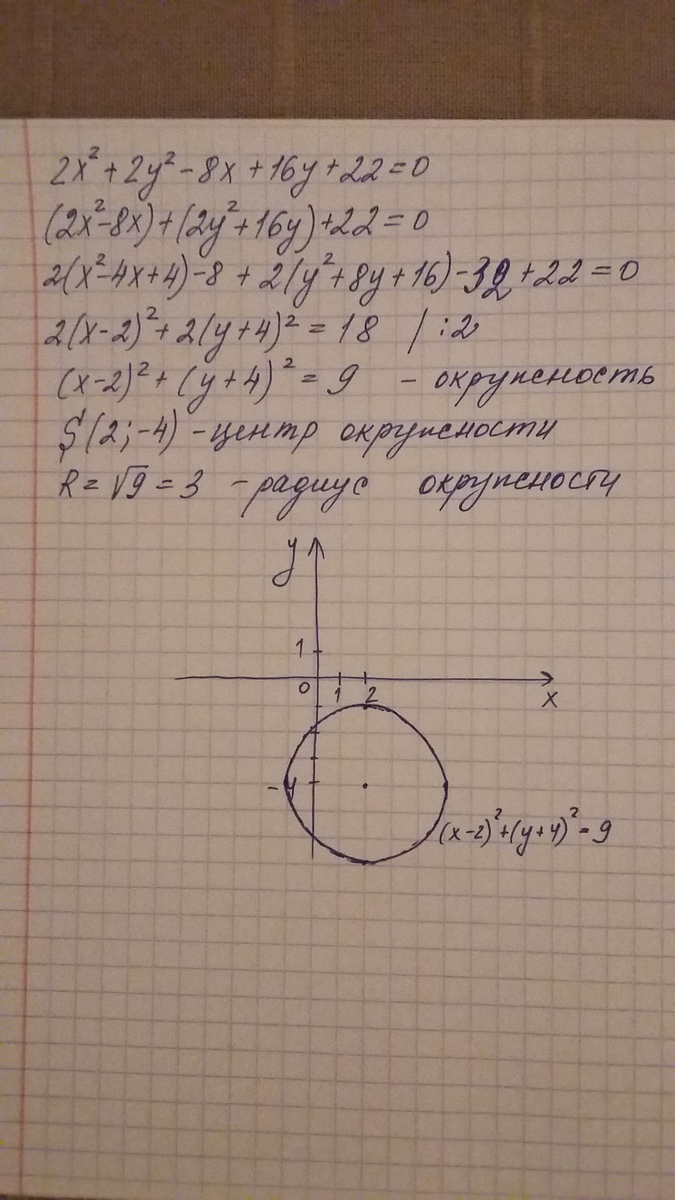 2x²+2y²-8x+16y+22=0
(2x²-8x)+(2y²+16y)+22=0
2(x²-4x+4)-8+2(y²+8y+16)-32+22=0
2(x-2)²+2(y+4)²=18 /:2
(x-2)²+(y+4)²=9 - окружность
S(2;-4) - центр окружности
R=√9=3 - радиус окружности
y
1
0 1 2 x
-4
(x-2)²+(y+4)²=9